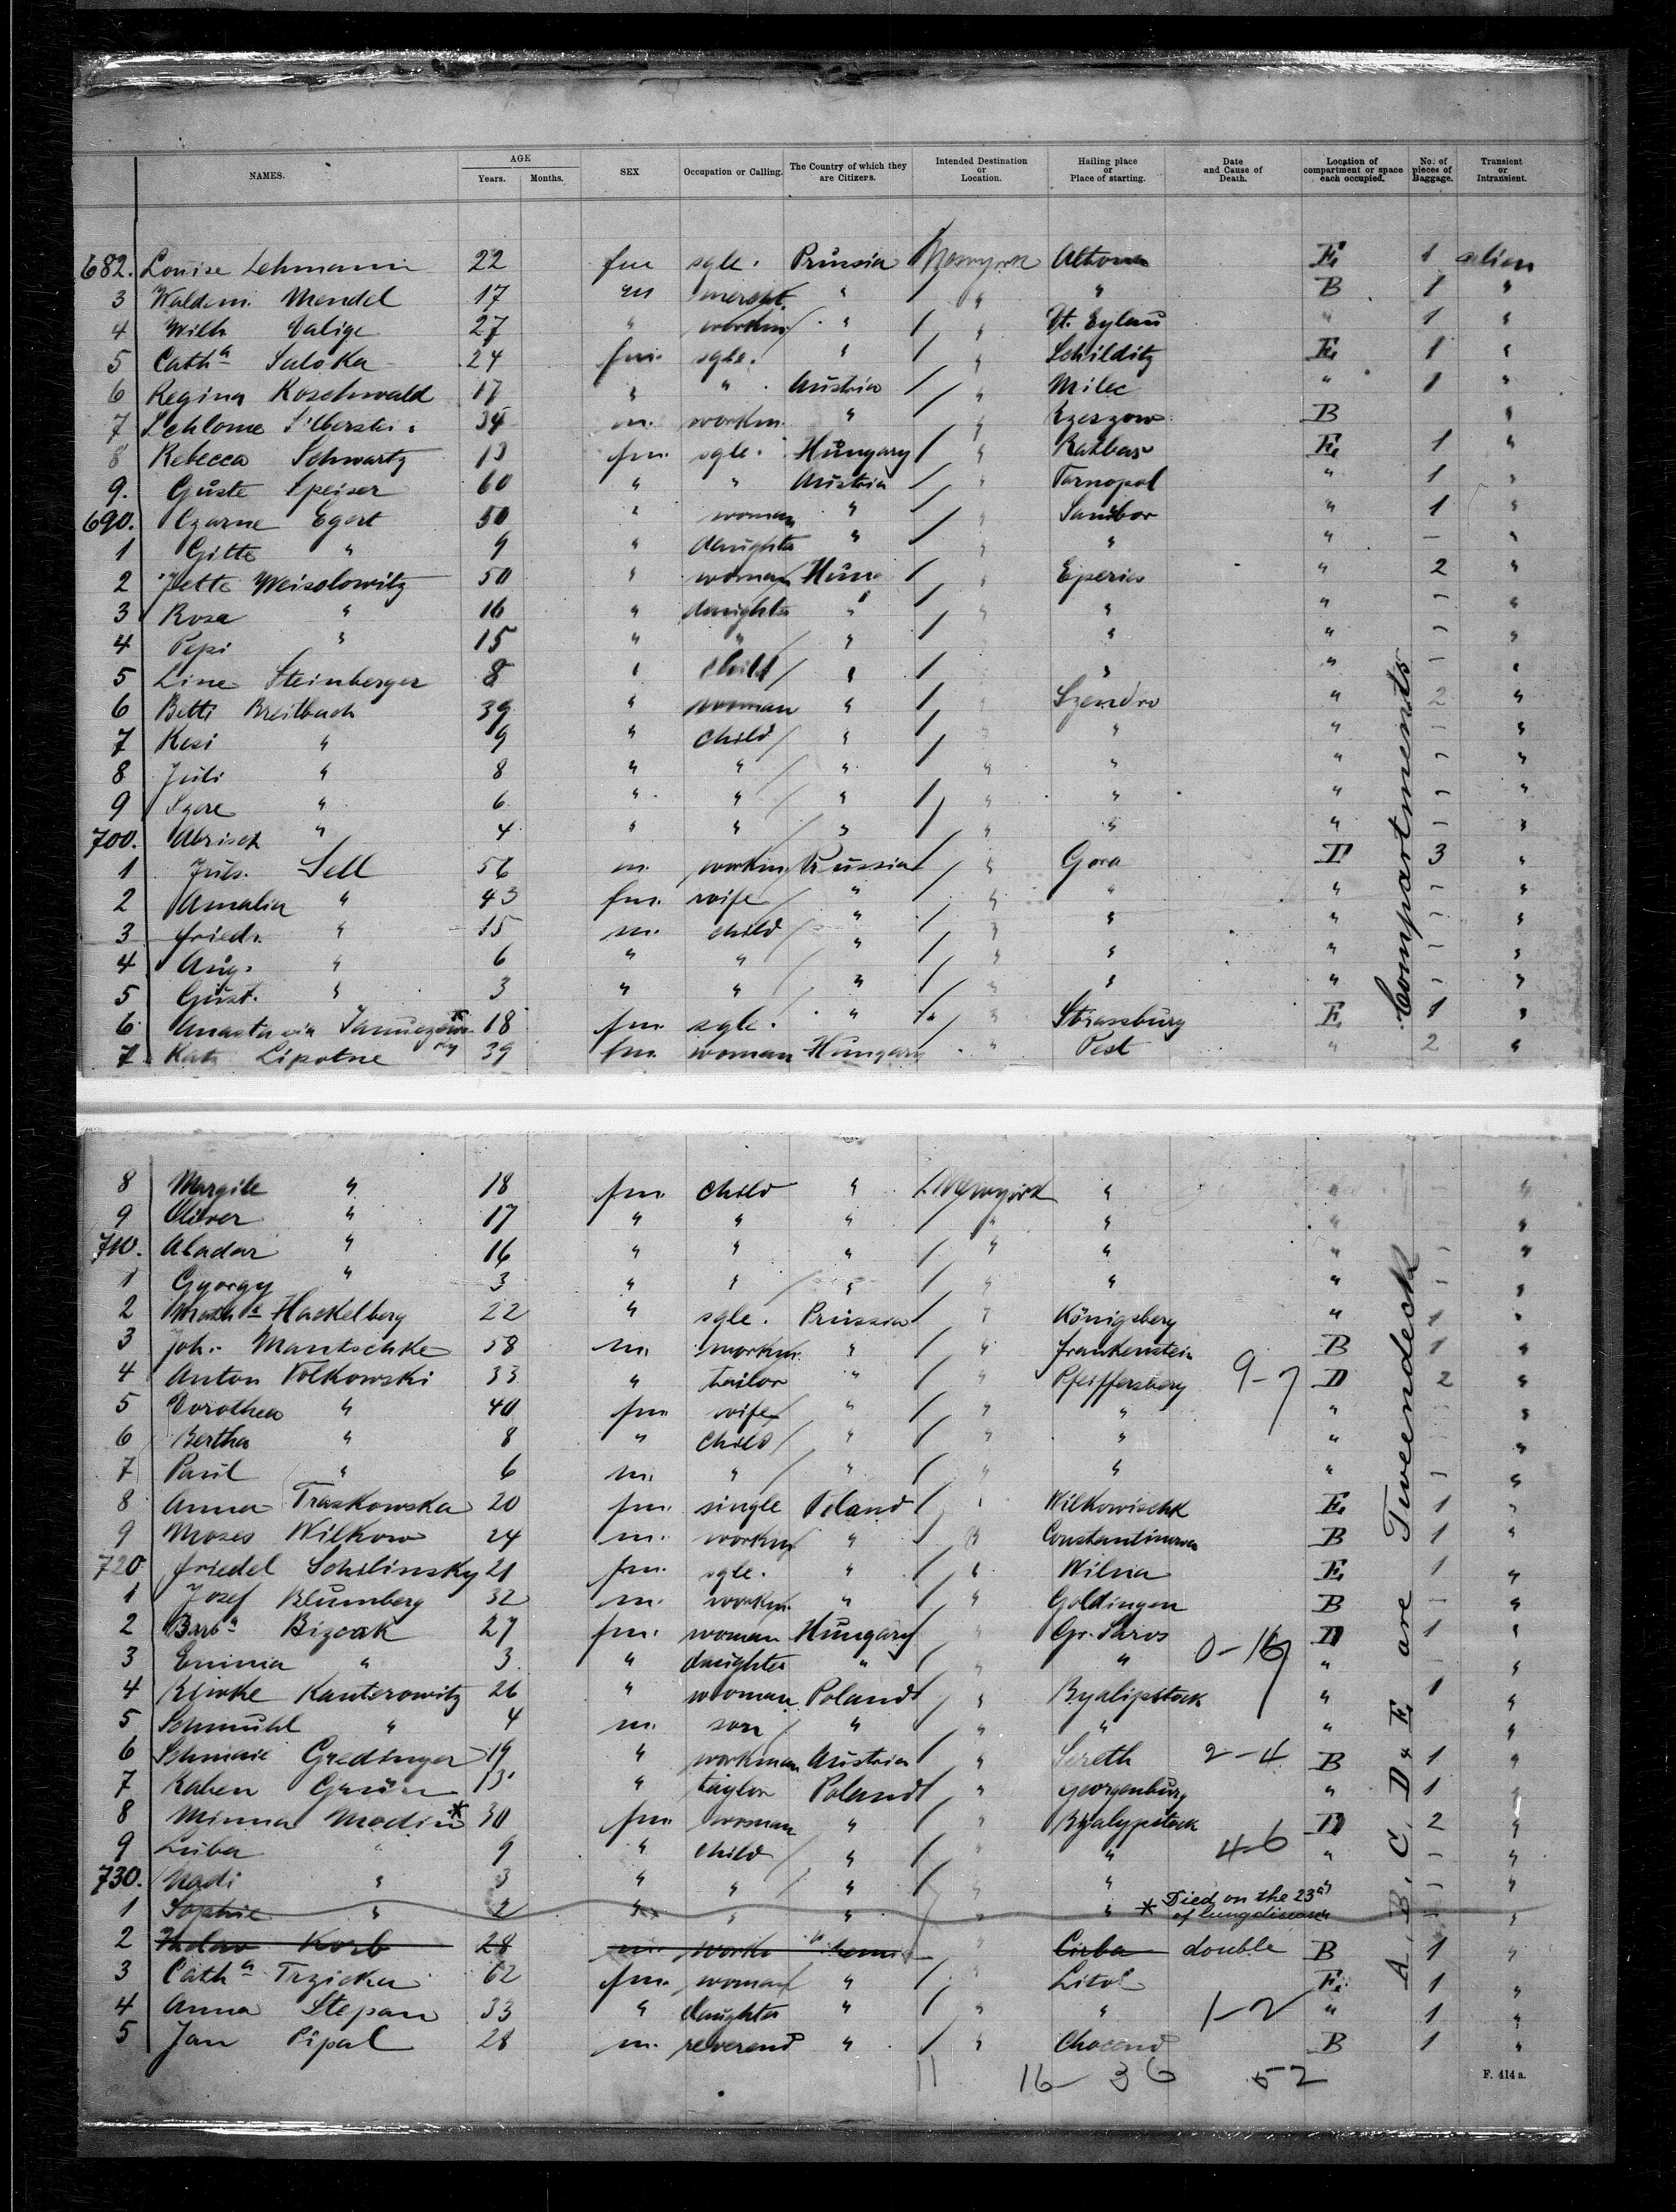 NAMES. AGE Years. Months. SEX Occupation or Calling. The Country of which they are Citizens. Intended Destination or Location. Hailing place or Place of starting. Date and Cause of Death. Location of compartment or space each occupied. No. of pieces of Baggage. Transient or Intransient.
682. Louise Lehmann 22 fm sgle. Prussia Newyork Altona E, 1 alien
3 Waldem. Mendel 17 m " " " B 1 "
4 Wilh 27 " workm " " Dt. Eylau " 1 "
5 Cath a Saloka 24 fm. sgle. " " Schilditz E, 1 "
6 Regina Koschwald 17 " " Austria " Milec " 1 "
7 Schlome 34 m. workm. " " Rzeszow B "
8 Rebecca Schwartz 13 fm. sgle. Hungary " E, 1 "
9. Guste Speiser 60 " " Austria " Tarnopol " 1 "
690. Czarne Egert 50 " woman " " Sambor " 1 "
1 Gitte " 9 " daughter " " " " – "
2 Jette Weisolowitz 50 " woman Hung " Eperies " 2 "
3 Rosa " 16 " daughter " " " " – "
4 Pepi " 15 " " " " " – "
5 Line Steinberger 8 " child " " " – "
6 Betti Breitbach 39 " woman " " Szendro " 2 "
7 Resi " 9 " child " " " " – "
8 Juli " 8 " " " " " " – "
9 Szere " 6 " " " " " " – "
700. Abrisch " 4 " " " " " " – "
1 Juls. Sell 56 m. workm. Russia " Gora D 3 "
2 Amalia " 43 fm. wife " " " " – "
3 Friedr. " 15 m. child " " " " – "
4 Aug. " 6 " " " " " " – "
5 Gust. " 3 " " " " " " – "
6 18 fm. sgle. " " Strassburg E, 1 "
7 Kat Lipotne 39 fm. woman Hungary " Pest " 2 "
8 Margite " 18 fm. child " Newyork " " "
9 Oliver " 17 " " " " " " "
710. Aladar " 16 " " " " " " – "
1 Gyorgy " 3 " " " " " " – "
2 Hackelberg 22 " sgle. Prussia " Königsberg " 1 "
3 Joh. Mantschke 58 m. workm. " " Frankenstein B 1 "
4 Anton Volkowski 33 " tailor " " Pfeiffersberg 9-7 D 2 "
5 Dorothea " 40 fm wife " " " " "
6 Bertha " 8 " child " " " " "
7 Paul " 6 m. " " " " " – "
8 Anna Traskowska 20 fm. single Poland " Wilkowischk E, 1 "
9 Moses Wilkow 24 m. workm " " B 1 "
720 Friedel Schilinsky 21 fm. sgle. " " Wilna E, 1 "
1 Josef Blumberg 32 m. workm. " " Goldingen B – "
2 Barb a Bizcak 27 fm. woman Hungary " Gr. Saros 0-16 D 1 "
3 Emma " 3 " daughter " " " " – "
4 Riwke Kanterowitz 26 " woman Poland " Byalipstock " 1 "
5 Schmuhl " 4 m. son " " " " "
6 Schmaie 19 " workman Austria " Sereth 2-4 B 1 "
7 Raben 13 " taylor Poland " Georgenburg " 1 "
8 Minna Modin * 30 fm. woman " " Byalypstock D 2 "
9 Luba " 9 " child " " " 4-6 " – "
730. Nadi " 3 " " " " " " – "
1 Sophie " 2 " " " " " * Died on the 23d of lungdisease – "
2 Korb 28 m. workm " Cirba double B 1 "
3 Cath a Trzicka 62 fm. woman " " E, 1 "
4 Anna Stepan 33 " daughter " " " 1-2 " 1 "
5 Jan Pipal 28 m. reverend " " B 1 "
11 16- 36 52
Compartments A, B, C, D & E, are Tweendeck
F. 414 a.